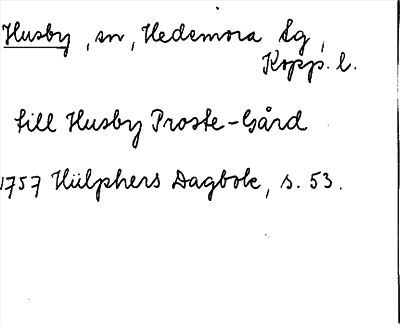 Husby, sn, Hedemora Lg,
Kopp. l.
till Husby Proste-Gård
1757 Hülphers Dagbok, s. 53.